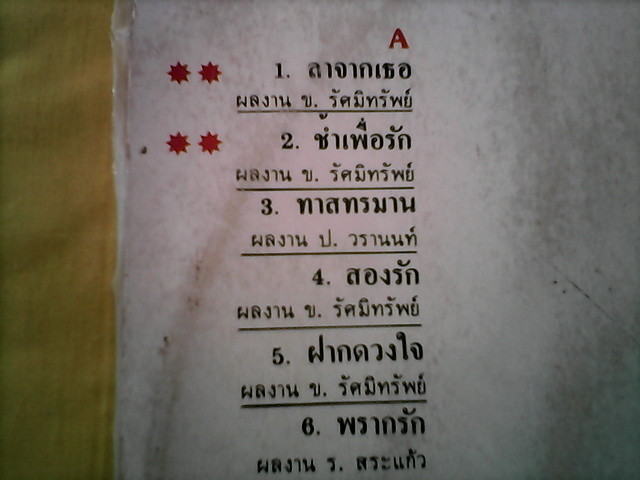 A
1. ลาจากเธอ
ผลงาน ข. รัศมิทรัพย์
2. ช้ำเพื่อรัก
ผลงาน ข. รัศมิทรัพย์
3. ทาสทรมาน
ผลงาน ป. วรานนท์
4. สองรัก
ผลงาน ข. รัศมิทรัพย์
5. ฝากดวงใจ
ผลงาน ข. รัศมิทรัพย์
6. พรากรัก
ผลงาน ร. สระแก้ว